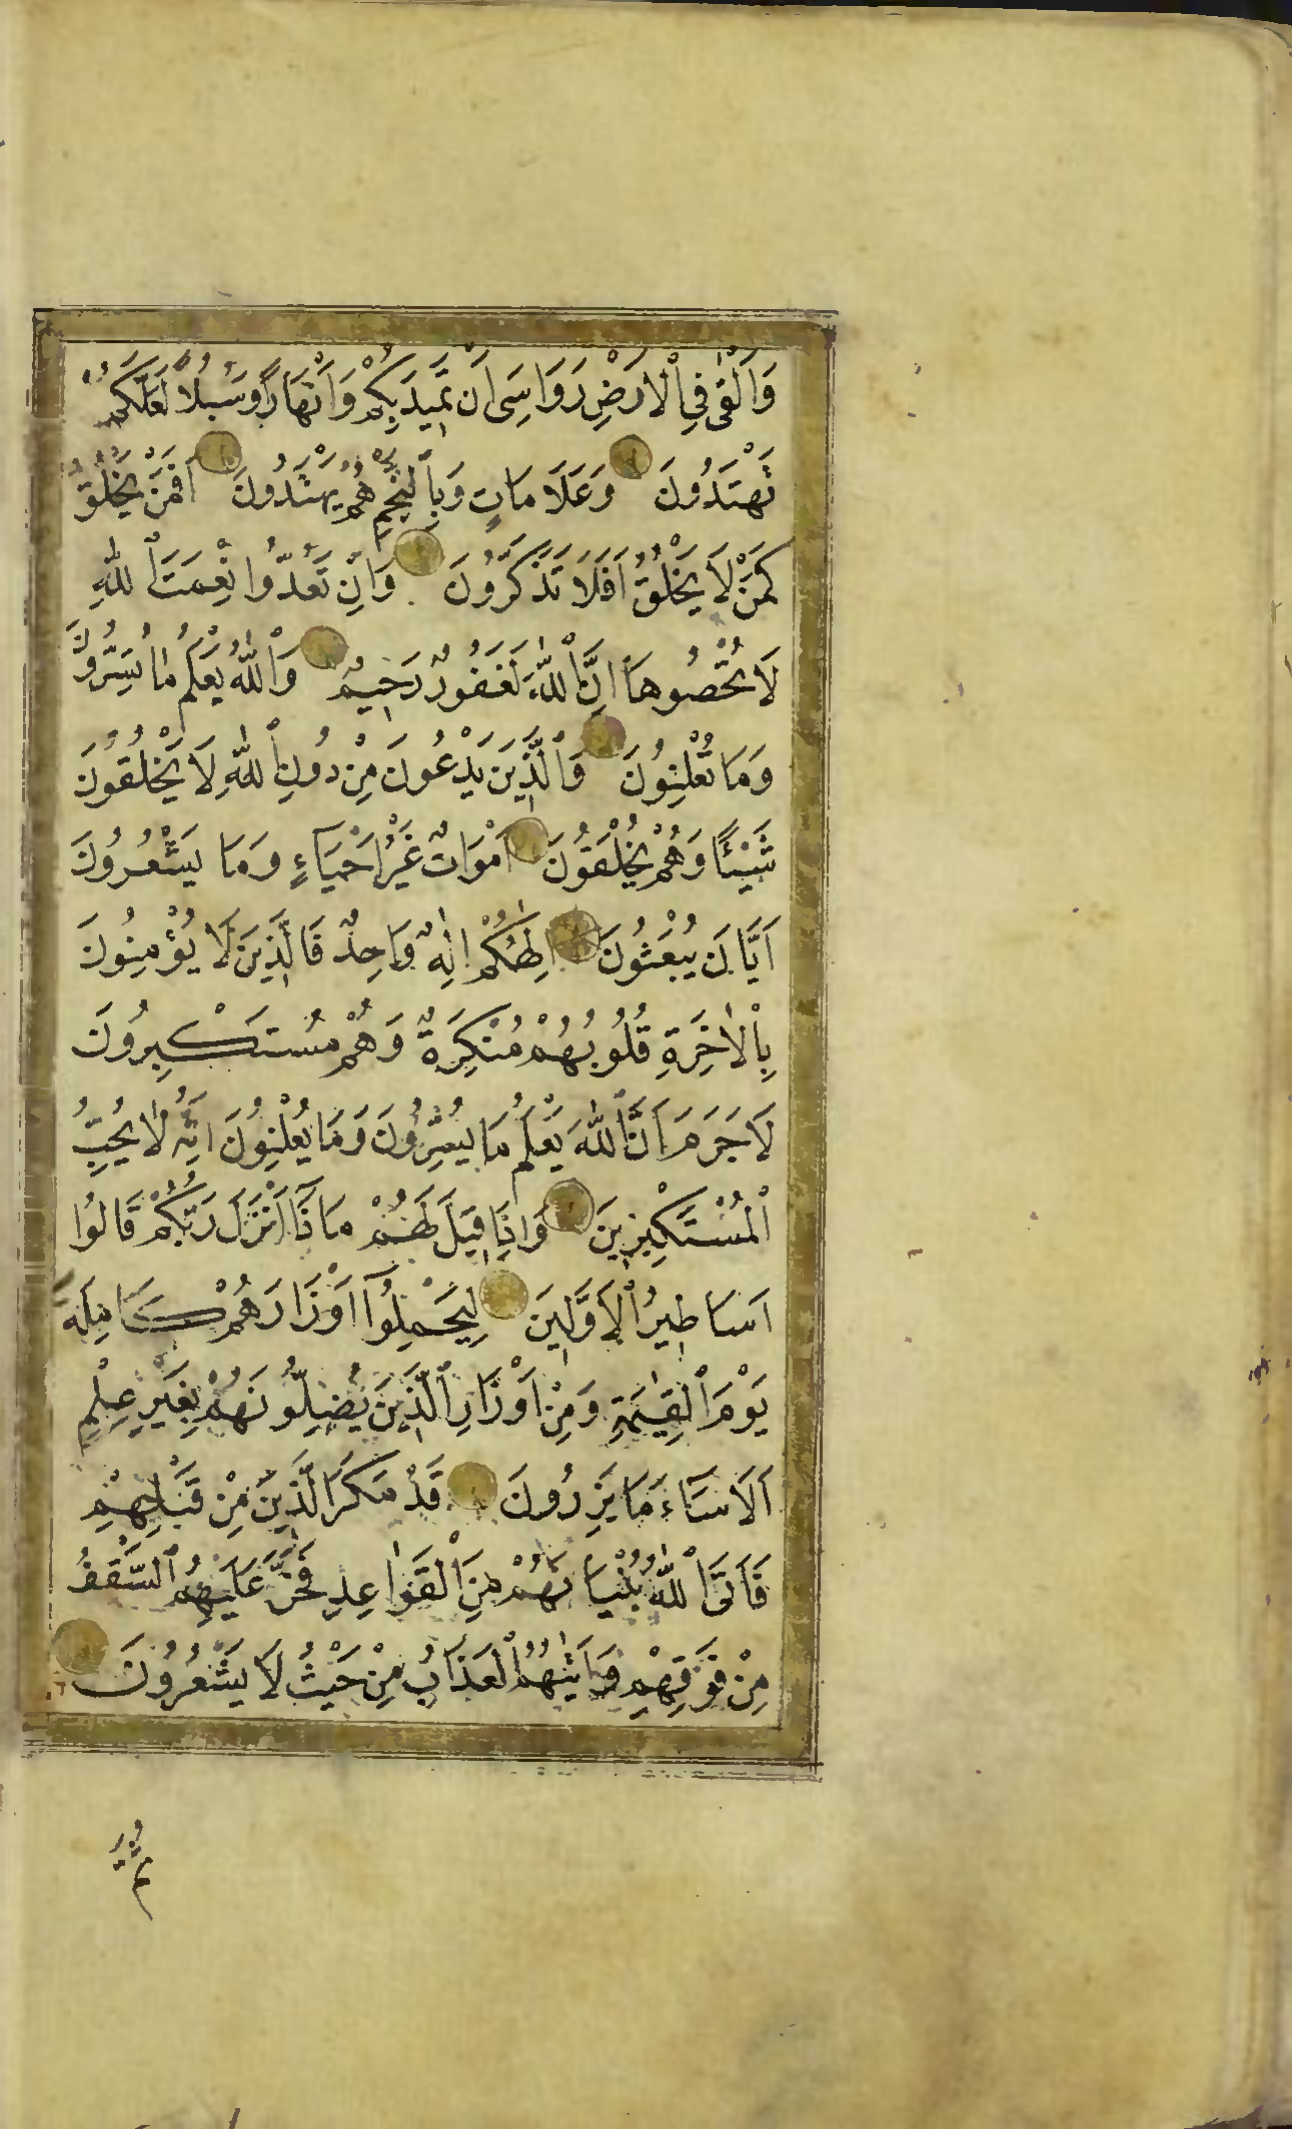 وَاَلْقٰى فِي اْلاَرْضِ رَوَاسِىَ اَنْ تَمِيدَ بِكُمْ وَاَنْهَارًا وَسُبُلًا لَعَلَّكُمْ
تَهْتَدُونَ وَعَلَامَاتٍ وَبِالنَّجْمِ هُمْ يَهْتَدُونَ اَفَمَنْ يَخْلُقُ
كَمَنْ لَا يَخْلُقُ اَفَلَا تَذَكَّرُونَ وَاِنْ تَعُدُّوا نِعْمَتَ اللّٰهِ
لَا تُحْصُوهَا اِنَّ اللّٰهَ لَغَفُورٌ رَحِيمٌ وَاللّٰهُ يَعْلَمُ مَا تُسِرُّونَ
وَمَا تُعْلِنُونَ وَالَّذِينَ يَدْعُونَ مِنْ دُونِ اللّٰهِ لَا يَخْلُقُونَ
شَيْئًا وَهُمْ يُخْلَقُونَ اَمْوَاتٌ غَيْرُ اَحْيَاءٍ وَمَا يَشْعُرُونَ
اَيَّانَ يُبْعَثُونَ اِلٰهُكُمْ اِلٰهٌ وَاحِدٌ فَالَّذِينَ لَا يُؤْمِنُونَ
بِاْلاٰخِرَةِ قُلُوبُهُمْ مُنْكِرَةٌ وَهُمْ مُسْتَكْبِرُونَ
لَا جَرَمَ اَنَّ اللّٰهَ يَعْلَمُ مَا يُسِرُّونَ وَمَا يُعْلِنُونَ اِنَّهُ لَا يُحِبُّ
الْمُسْتَكْبِرِينَ وَاِذَا قِيلَ لَهُمْ مَاذَا اَنْزَلَ رَبُّكُمْ قَالُوا
اَسَاطِيرُ اْلاَوَّلِينَ لِيَحْمِلُوٓا اَوْزَارَهُمْ كَامِلَةً
يَوْمَ الْقِيٰمَةِ وَمِنْ اَوْزَارِ الَّذِينَ يُضِلُّونَهُمْ بِغَيْرِ عِلْمٍ
اَلَا سَاءَ مَا يَزِرُونَ قَدْ مَكَرَ الَّذِينَ مِنْ قَبْلِهِمْ
فَاَتَى اللّٰهُ بُنْيَانَهُمْ مِنَ الْقَوَاعِدِ فَخَرَّ عَلَيْهِمُ السَّقْفُ
مِنْ فَوْقِهِمْ وَاَتٰيهُمُ الْعَذَابُ مِنْ حَيْثُ لَا يَشْعُرُونَ
ثُمَّ